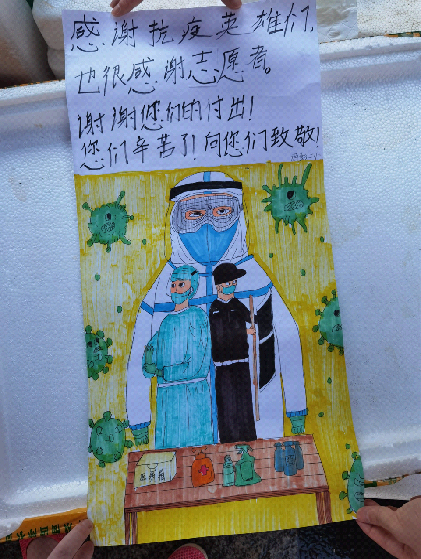 感谢抗疫英雄们,
也很感谢志愿者。
谢谢您们的付出!
您们辛苦了!向您们致敬!